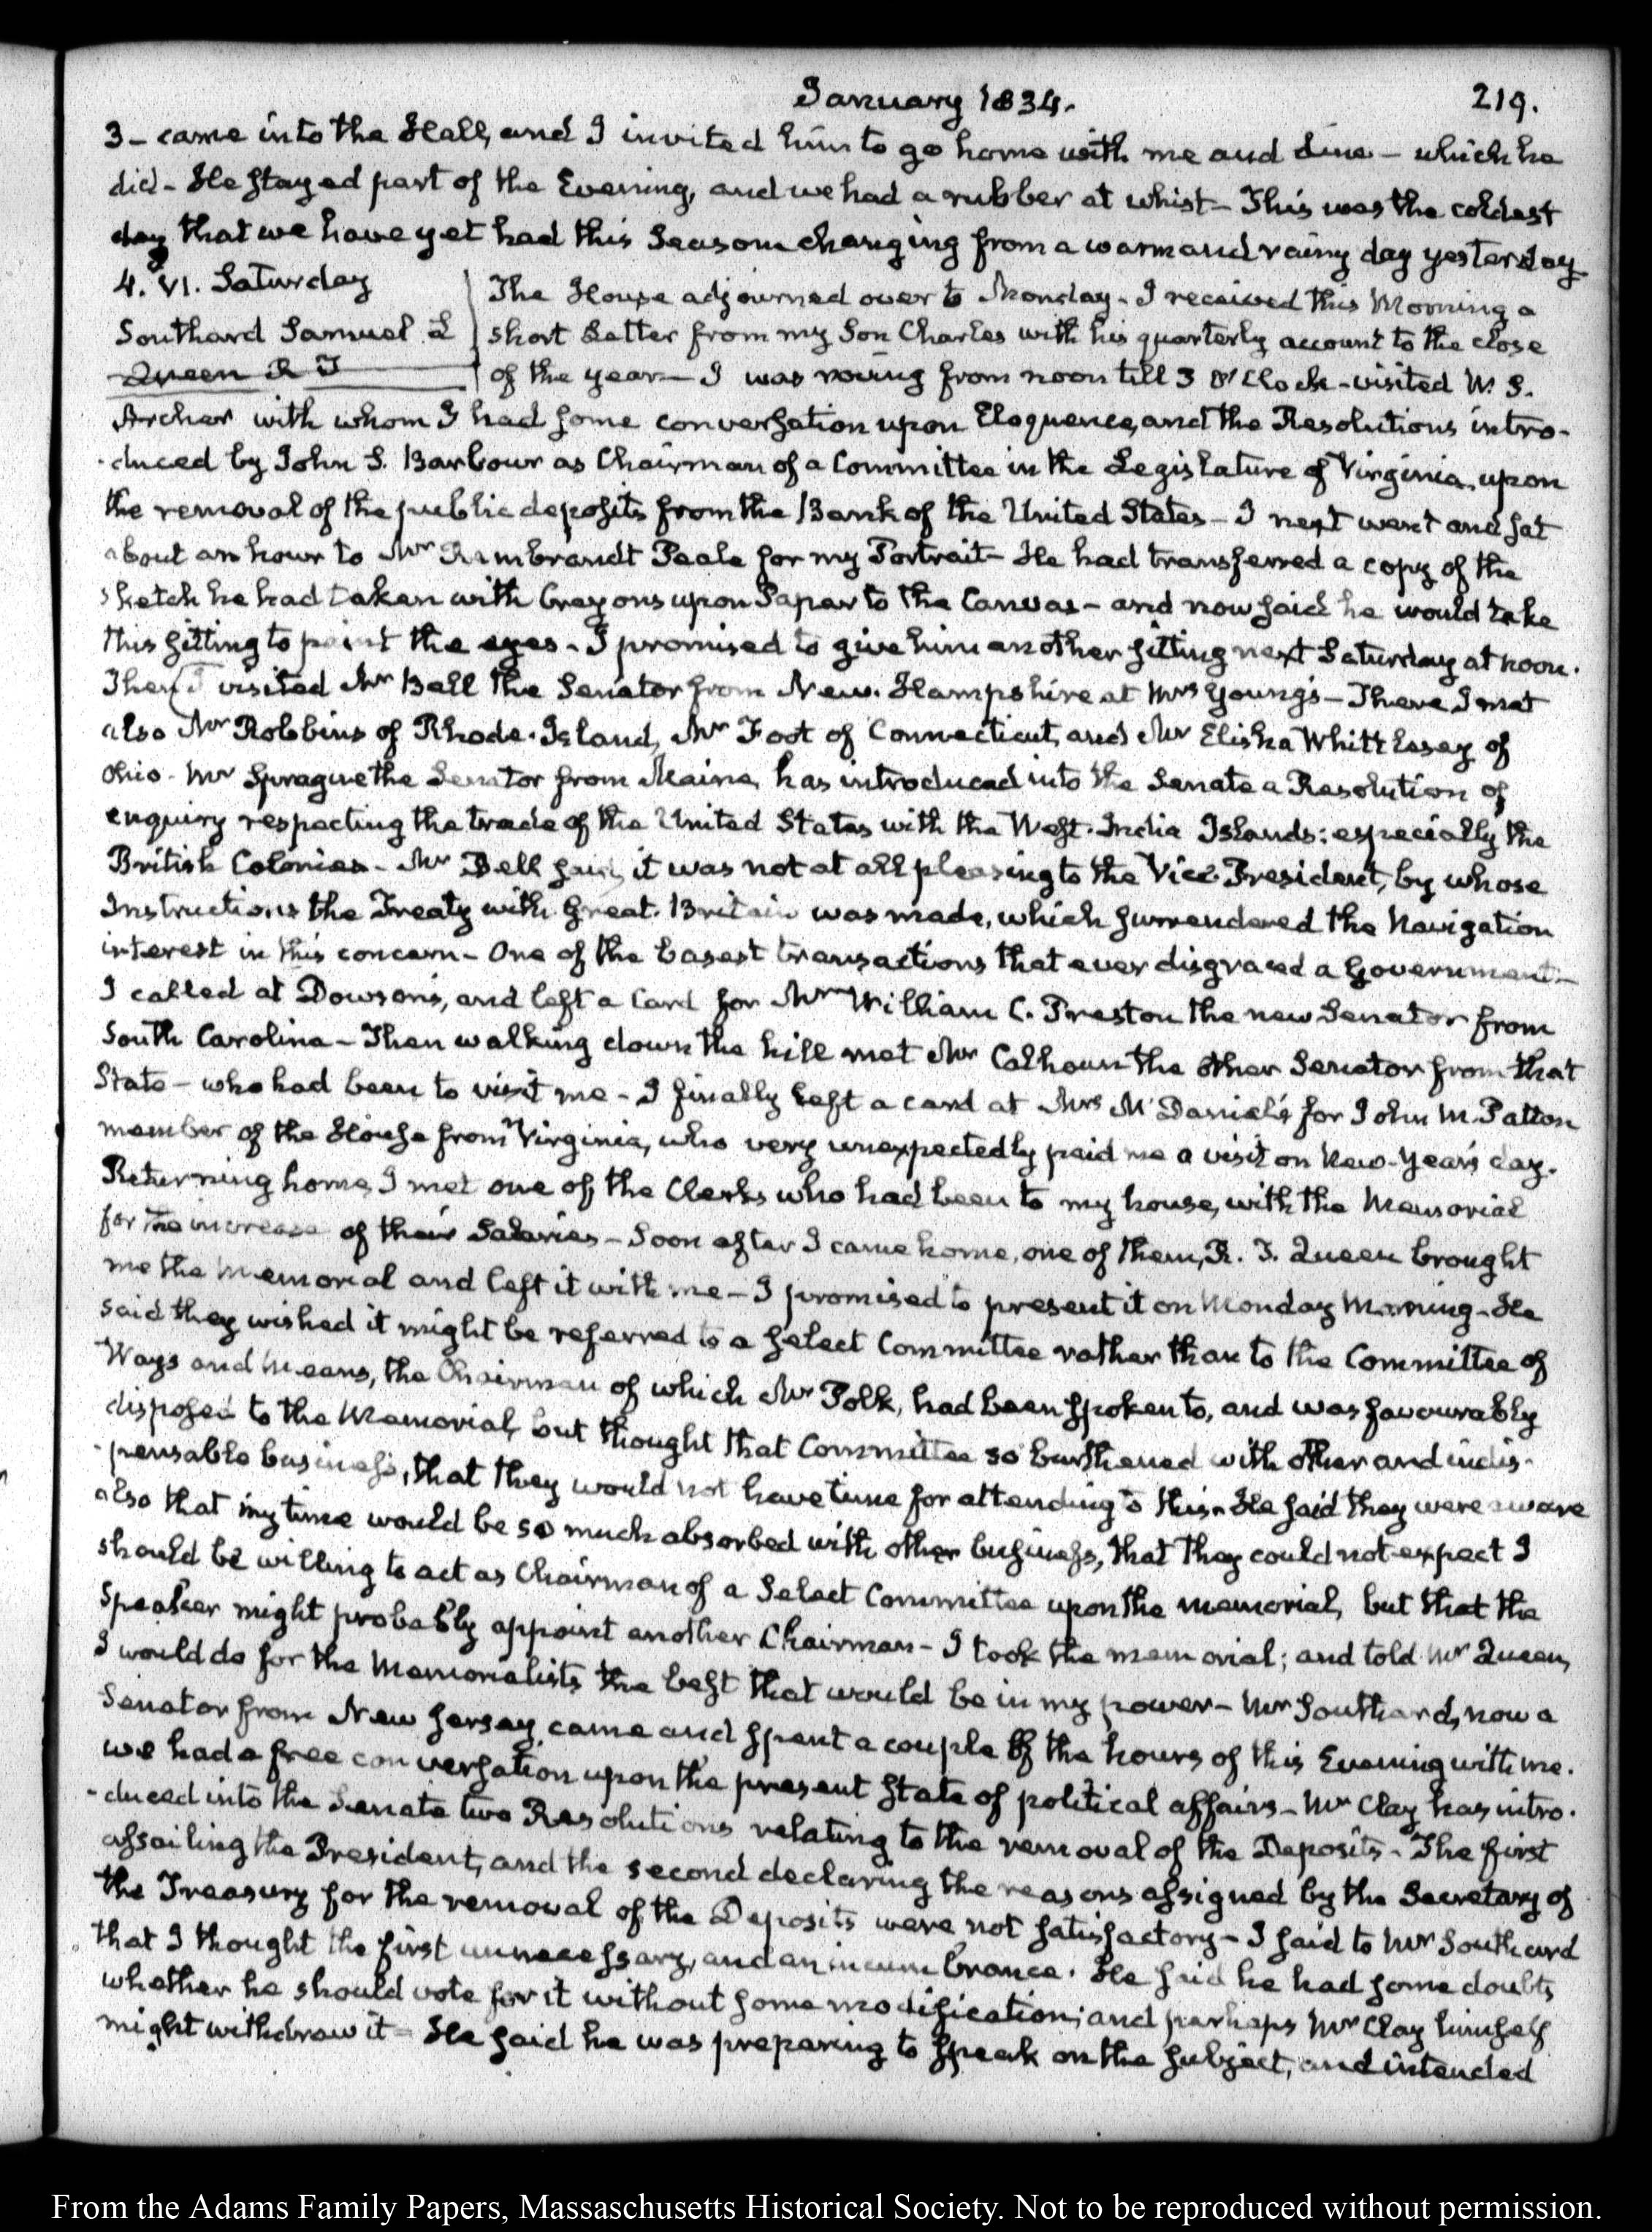 January 1834.
219.
3 - came into the Hall, and I invited him to go home with me and dine - which he
did - He stayed part of the Evening, and we had a rubber at whist - This was the coldest
day that we have yet had this Season changing from a warm and rainy day yesterday
4. VI. Saturday
Southard Samuel L
Queen R J
The House adjourned over to Monday - I received this Morning a
short Letter from my Son Charles with his quarterly account to the close
of the year - I was roving from noon till 3 O'Clock - visited W. S.
Archer with whom I had some conversation upon Eloquence, and the Resolutions intro-
-duced by John S. Barbour as Chairman of a Committee in the Legislature of Virginia, upon
the removal of the public deposits from the Bank of the United States - I next went and sat
about an hour to Mr Rembrandt Peale for my Portrait - He had transferred a copy of the
sketch he had taken with Crayons upon Paper to the Canvas - and now said he would take
this sitting to paint the eyes - I promised to give him another sitting next Saturday at noon.
Then I visited Mr Bell the Senator from New-Hampshire at Mrs Young's - There I met
also Mr Robbins of Rhode-Island, Mr Foot of Connecticut, and Mr Elisha Whittlesey of
Ohio - Mr Sprague the Senator from Maine, has introduced into the Senate a Resolution of
enquiry respecting the trade of the United States with the West-India Islands: especially the
British Colonies - Mr Bell said, it was not at all pleasing to the Vice-President, by whose
Instructions the Treaty with Great-Britain was made, which surrendered the Navigation
interest in this concern - One of the basest transactions that ever disgraced a Government -
I called at Dowson's, and left a Card for Mr William C. Preston the new Senator from
South Carolina - Then walking down the hill met Mr Calhoun the other Senator from that
State - who had been to visit me - I finally left a card at Mrs McDaniel's for John M. Patton
member of the House from Virginia, who very unexpectedly paid me a visit on New-Year's day.
Returning home, I met one of the Clerks who had been to my house, with the Memorial
for the increase of their Salaries - Soon after I came home, one of them, R. J. Queen brought
me the Memorial and left it with me - I promised to present it on Monday Morning - He
said they wished it might be referred to a select Committee rather than to the Committee of
Ways and Means, the Chairman of which Mr Polk, had been spoken to, and was favourably
disposed to the Memorial, but thought that Committee so burthened with other and indis-
-pensable business, that they would not have time for attending to this. He said they were aware
also that my time would be so much absorbed with other business, that they could not expect I
should be willing to act as Chairman of a Select Committee upon the memorial, but that the
Speaker might probably appoint another Chairman - I took the memorial; and told Mr Queen,
I would do for the Memorialists the best that would be in my power - Mr Southard, now a
Senator from New Jersey, came and spent a couple of the hours of this Evening with me.
we had a free conversation upon the present state of political affairs - Mr Clay has intro-
-duced into the Senate two Resolutions relating to the removal of the Deposits - The first
assailing the President, and the second declaring the reasons assigned by the Secretary of
the Treasury for the removal of the Deposits were not satisfactory - I said to Mr Southard
that I thought the first unnecessary, and an incumbrance. He said he had some doubts
whether he should vote for it without some modification; and perhaps Mr Clay himself
might withdraw it - He said he was preparing to speak on the subject, and intended
From the Adams Family Papers, Massachusetts Historical Society. Not to be reproduced without permission.